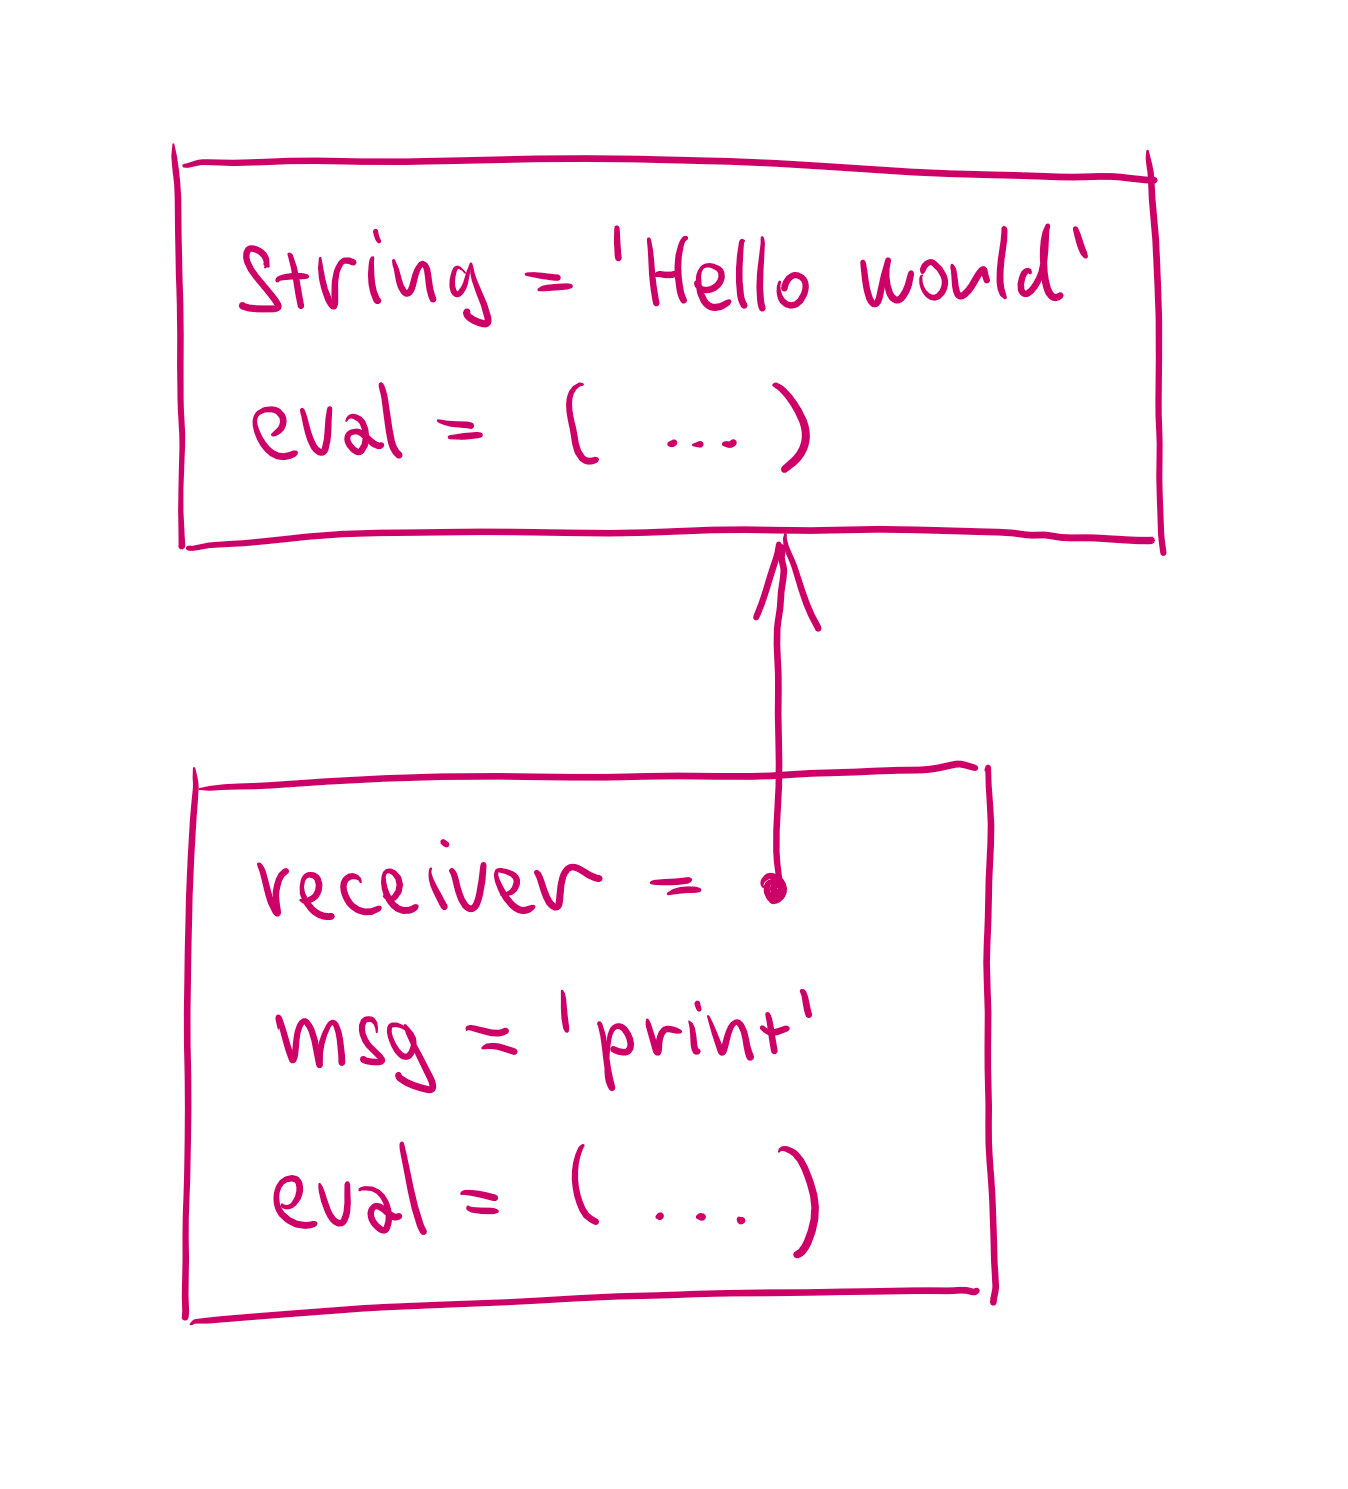 string = 'Hello world'
eval = ( ... )
receiver =
msg = 'print'
eval = ( ... )